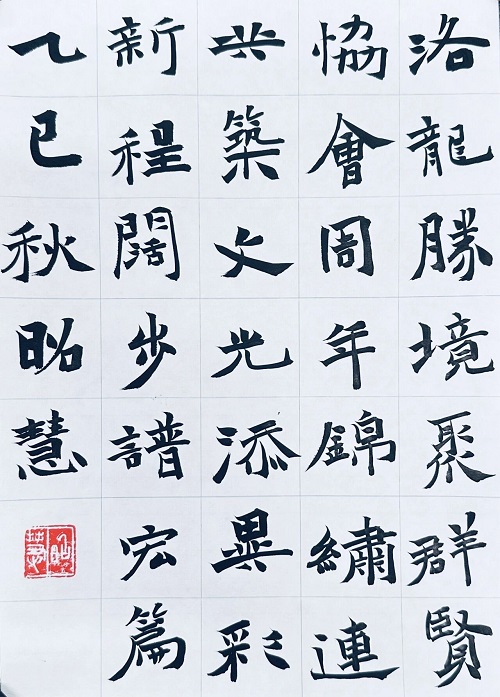 洛龍勝境聚群賢
恊會周年錦繡連
共築文光添異彩
新程闊步譜宏篇
乙巳秋昭慧